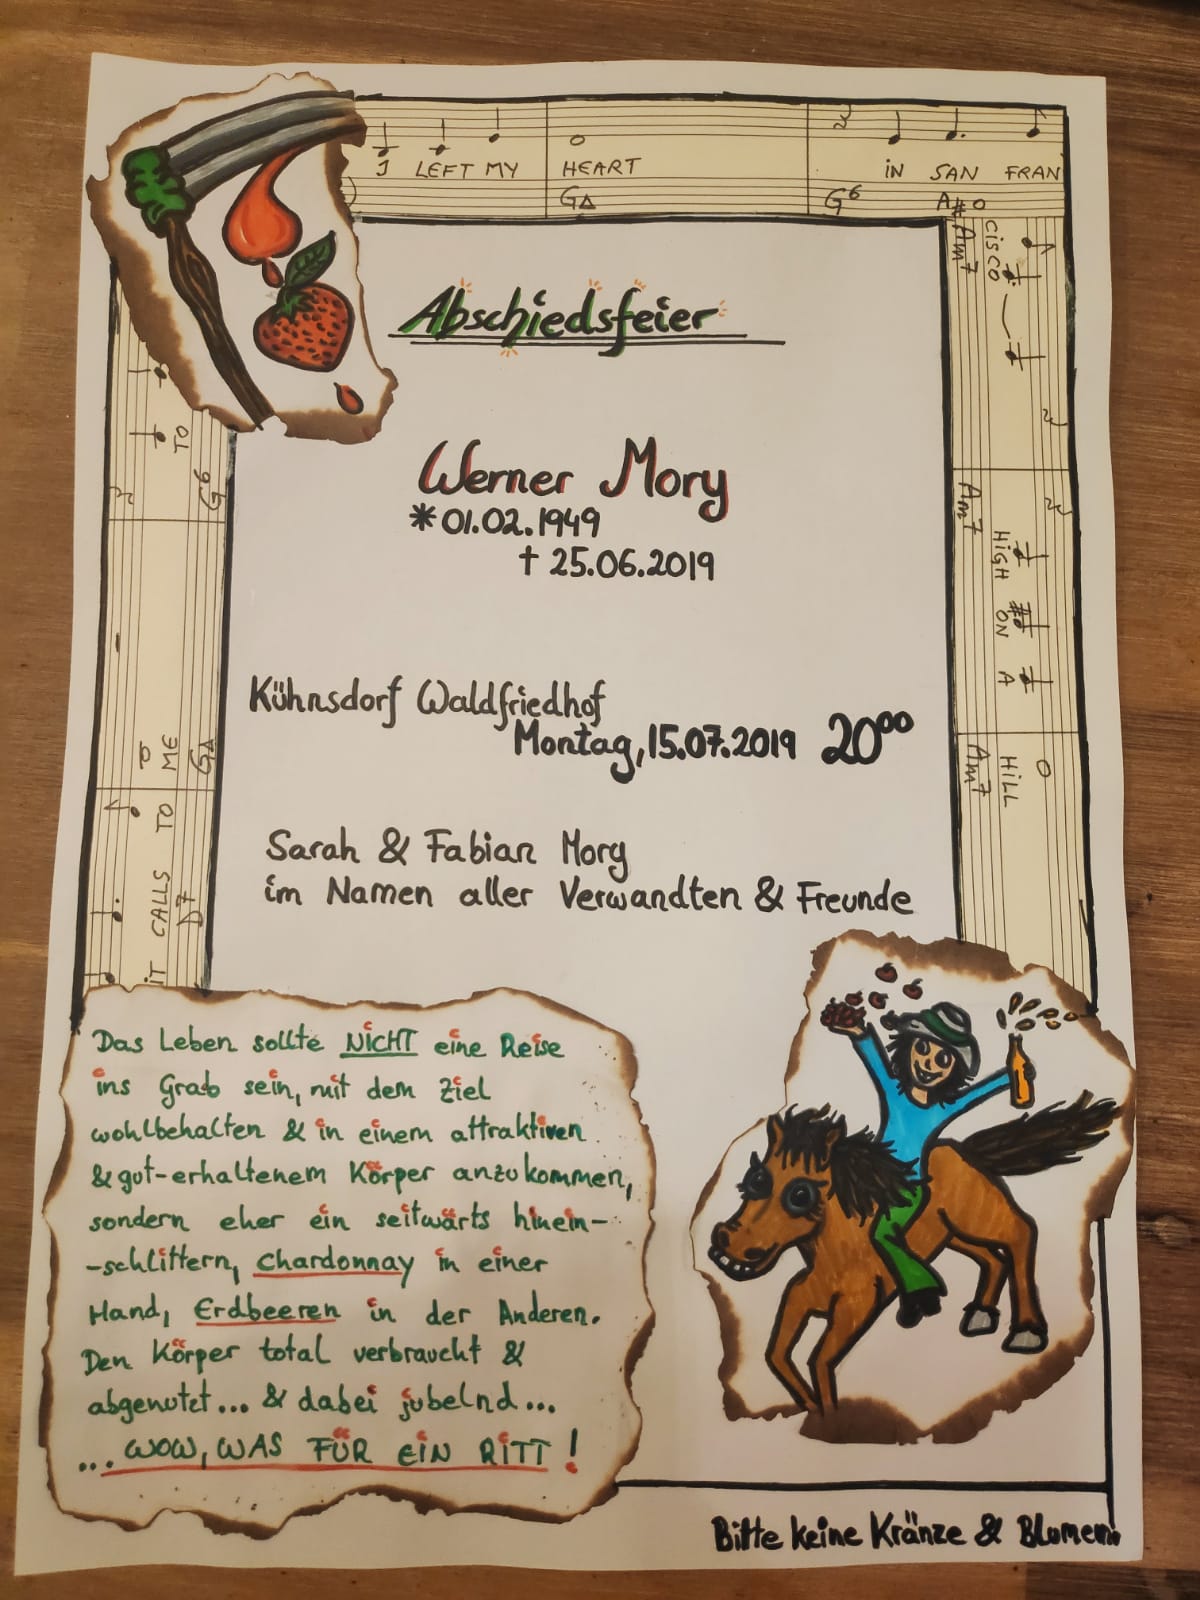 I LEFT MY HEART IN SAN FRAN
G△ G6 A#o
CISCO
Am7
HIGH ON A
Am7
HILL
Am7
TO
G6
ME
G△
IT CALLS TO
D7
Abschiedsfeier
Werner Mory
*01.02.1949
† 25.06.2019
Kühnsdorf Waldfriedhof
Montag, 15.07.2019 20⁰⁰
Sarah & Fabian Mory
im Namen aller Verwandten & Freunde
Das Leben sollte NICHT eine Reise
ins Grab sein, mit dem Ziel
wohlbehalten & in einem attraktiven
& gut-erhaltenem Körper anzukommen,
sondern eher ein seitwärts hinein-
-schlittern, Chardonnay in einer
Hand, Erdbeeren in der Anderen.
Den Körper total verbraucht &
abgenutzt... & dabei jubelnd...
... WOW, WAS FÜR EIN RITT!
Bitte keine Kränze & Blumen!